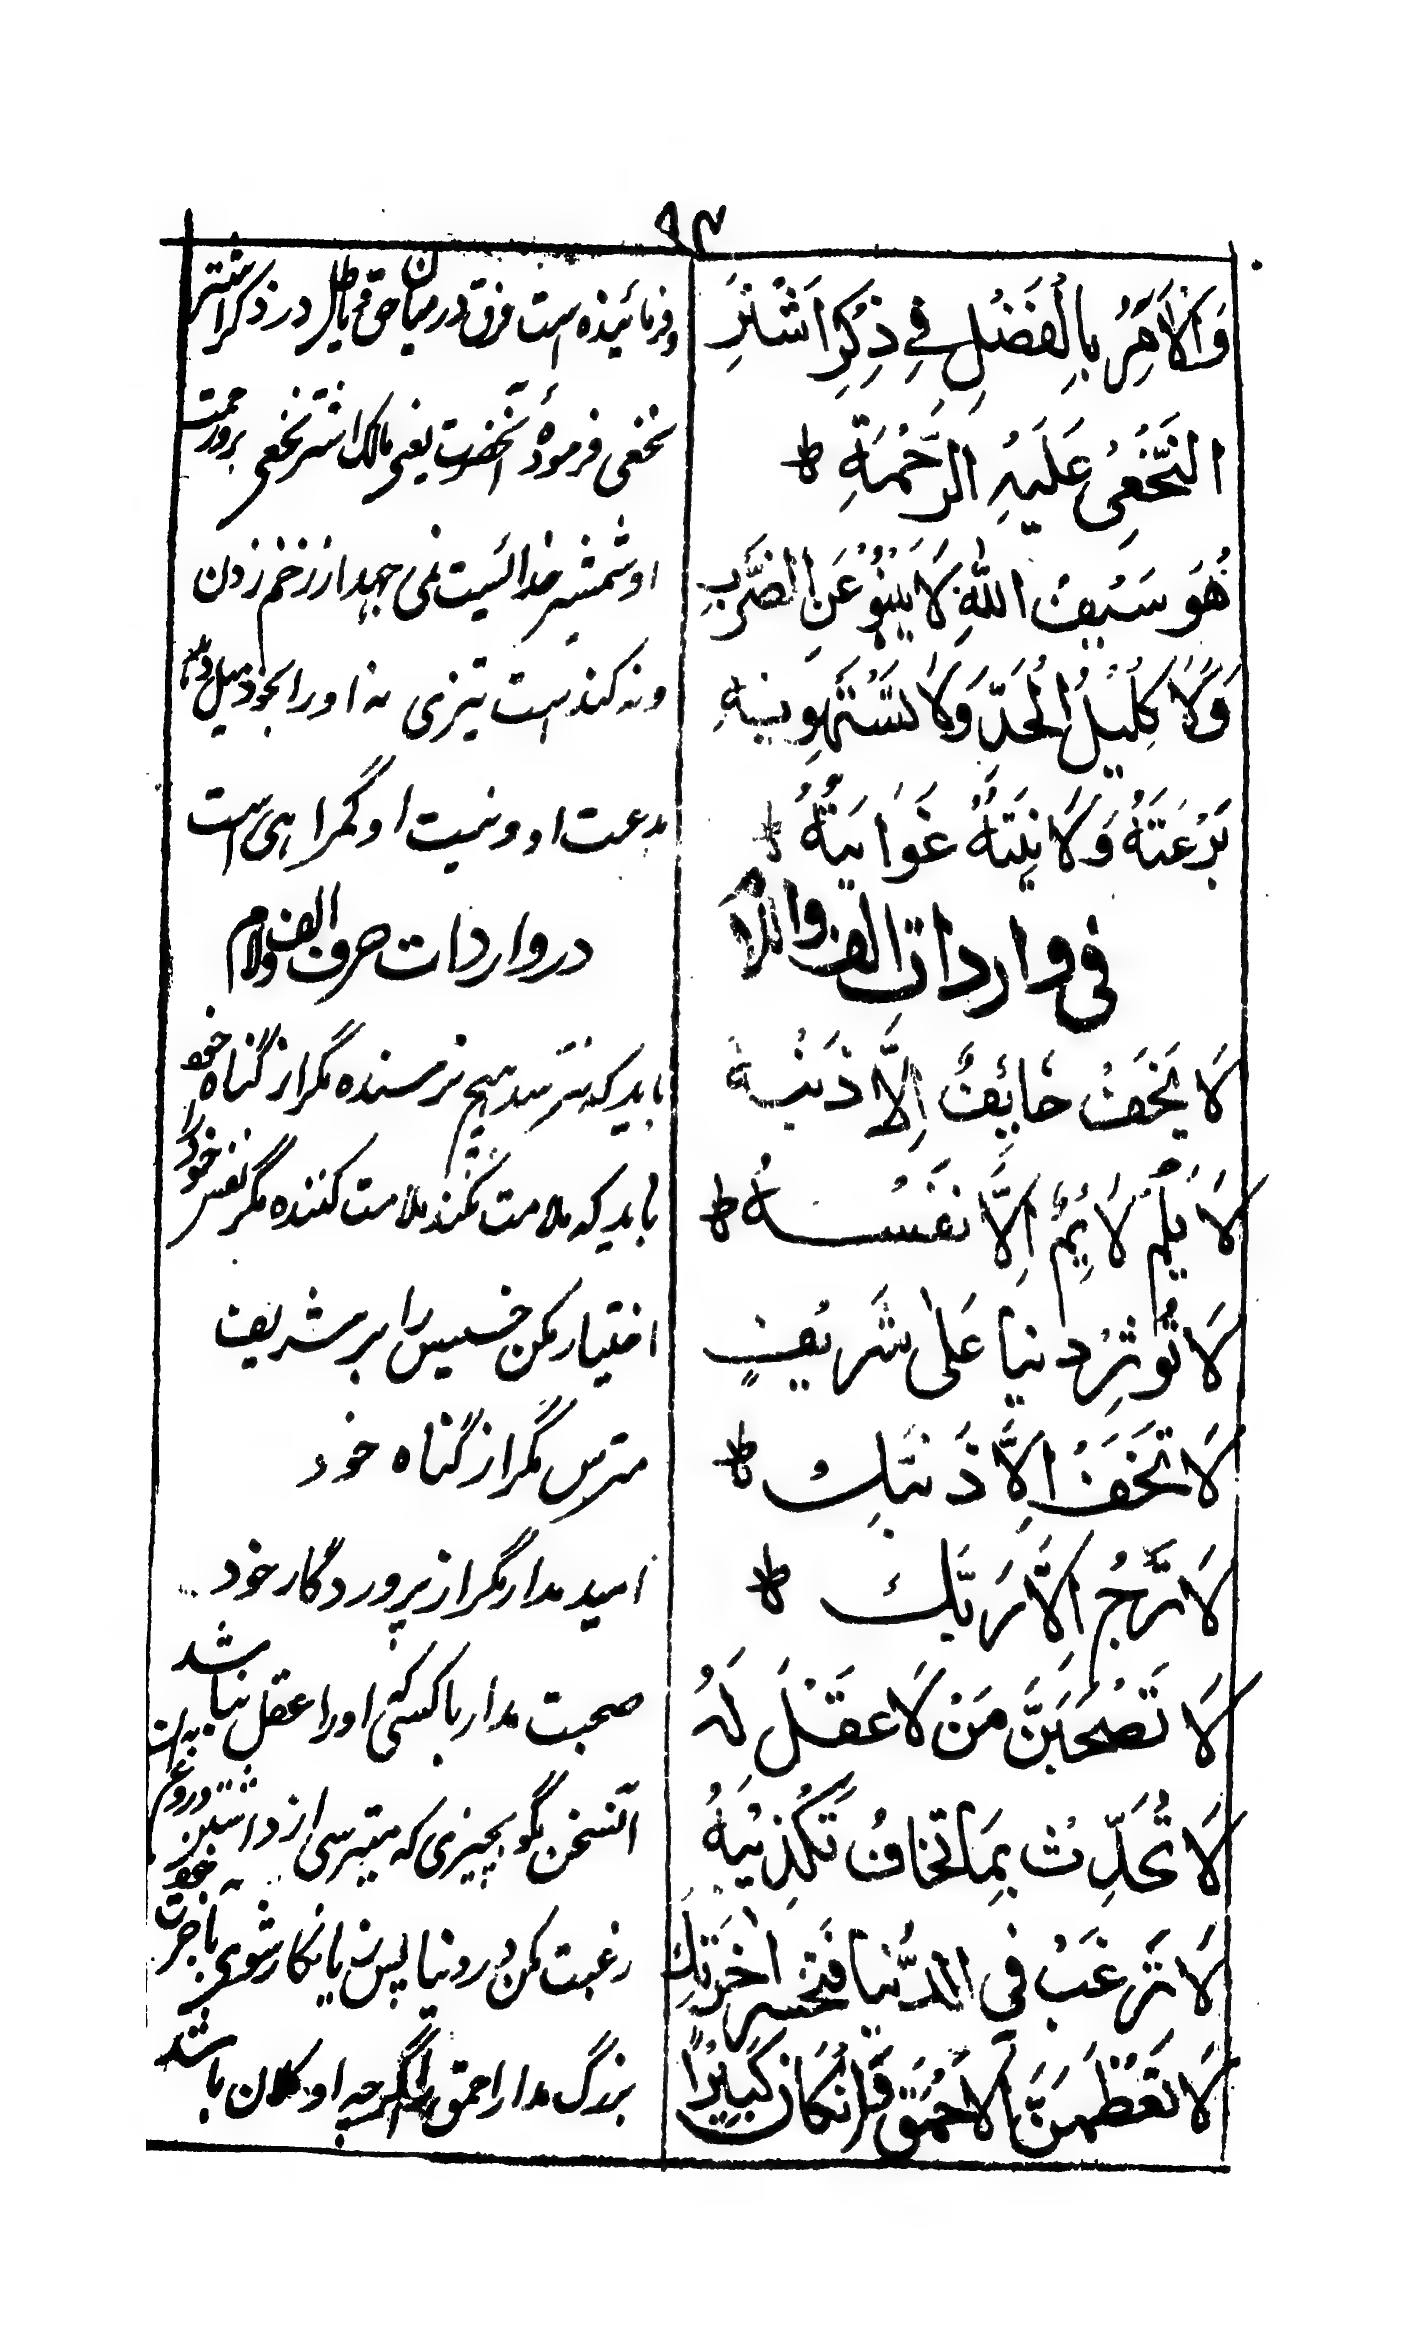 ٩٣
وَالْاٰمِرُ بِالْفَضْلِ فِي ذِكْرِ اَشْتَرِ
وفرمائیده است فرق درمیان حق و باطل در ذکر اشتر
النَّخَعِىْ عَلَيْهِ الرَّحْمَةِ ط
نخعی فرمودهٔ آنحضرت یعنی مالک اشتر نخعی بروز رحمت
هُوَ سَيْفُ اللّٰهِ لَا يَنْبُوْ عَنِ الضَّرْبِ
او شمشیر خدائیست نمی جهد از زخم زدن
وَلَا كَلِيْلُ الْحَدِّ وَلَا تَسْتَهْوِيْهِ
ونه کند است تیزی نه او را بخود میل دهد
بَدْعَتُهُ وَلَا نِيَّتُهُ غَوَايَتُهُ ط
بدعت او و نیت او گمراهی است
فی واردات الف واللام
در واردات حرف الف ولام
لَا يَخَفْ خَائِفٌ اِلَّا ذَنْبَهُ
باید که نترسد هیچ ترسنده مگر از گناه خود
لَا يَلُمْ لَائِمٌ اِلَّا نَفْسَهُ ط
باید که ملامت نکند ملامت کننده مگر نفس خود را
لَا تُوثِرْ دنيا عَلٰى شَرِيْفٍ
اختیار مکن خسیس را بر شریف
لَا تَخَفْ اِلَّا ذَنْبَكَ ط
مترس مگر از گناه خود
لَا تَرْجُ اِلَّا رَبَّكَ ط
امید مدار مگر از پروردگار خود
لَا تَصْحَبَنَّ مَنْ لَا عَقْلَ لَهُ
صحبت مدار با کسی که او را عقل نباشد
لَا تُحَدِّثْ بِمَا تَخَافُ تَكْذِيْبَهُ
سخن مگو بچیزی که میترسی از دروغ داشتن
لَا تَرْغَبْ فِي الدُّنْيَا فَتَخْسَرَ اٰخِرَتَكَ
رغبت مکن در دنیا پس زیانکار شوی بآخرت خود
لَا تُعَظِّمَنَّ الْاَحْمَقَ وَاِنْ كَانَ كَبِيْرًا
بزرگ مدار احمق را اگرچه او کلان باشد